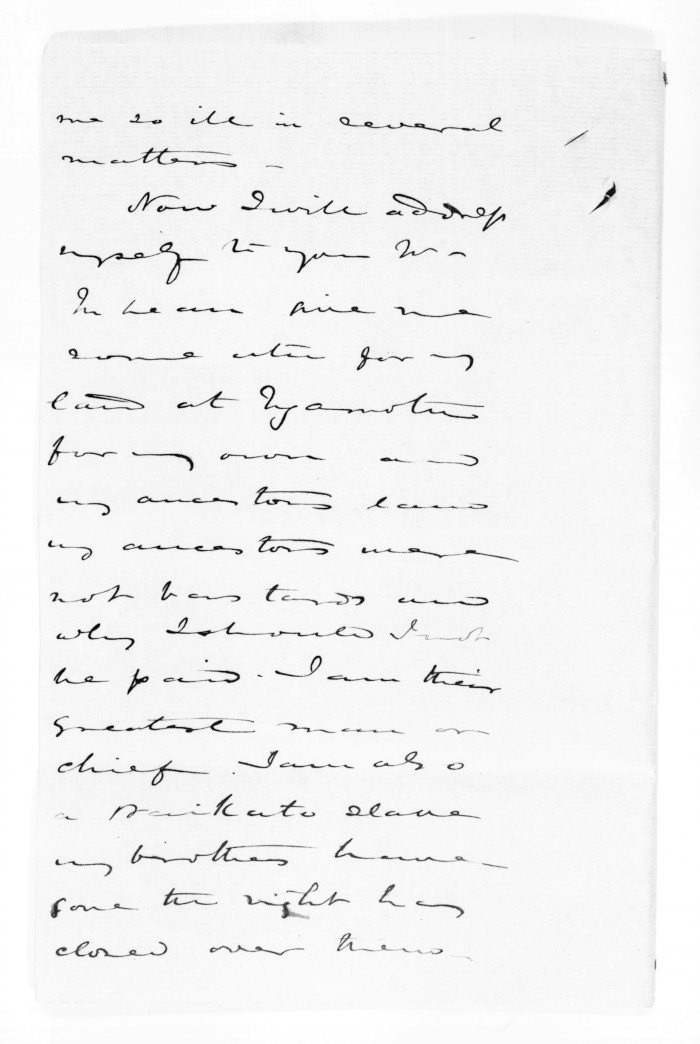 me so ill in several
matters –
Now I will address
myself to you Mr –
McLean give me
some utu for my
land at Ngamotu
for my own and
my ancestors land
my ancestors were
not bastards and
why should I not
be paid. I am their
greatest man or
chief. I am also
a Waikato slave
my brothers have
gone the night has
closed over them –